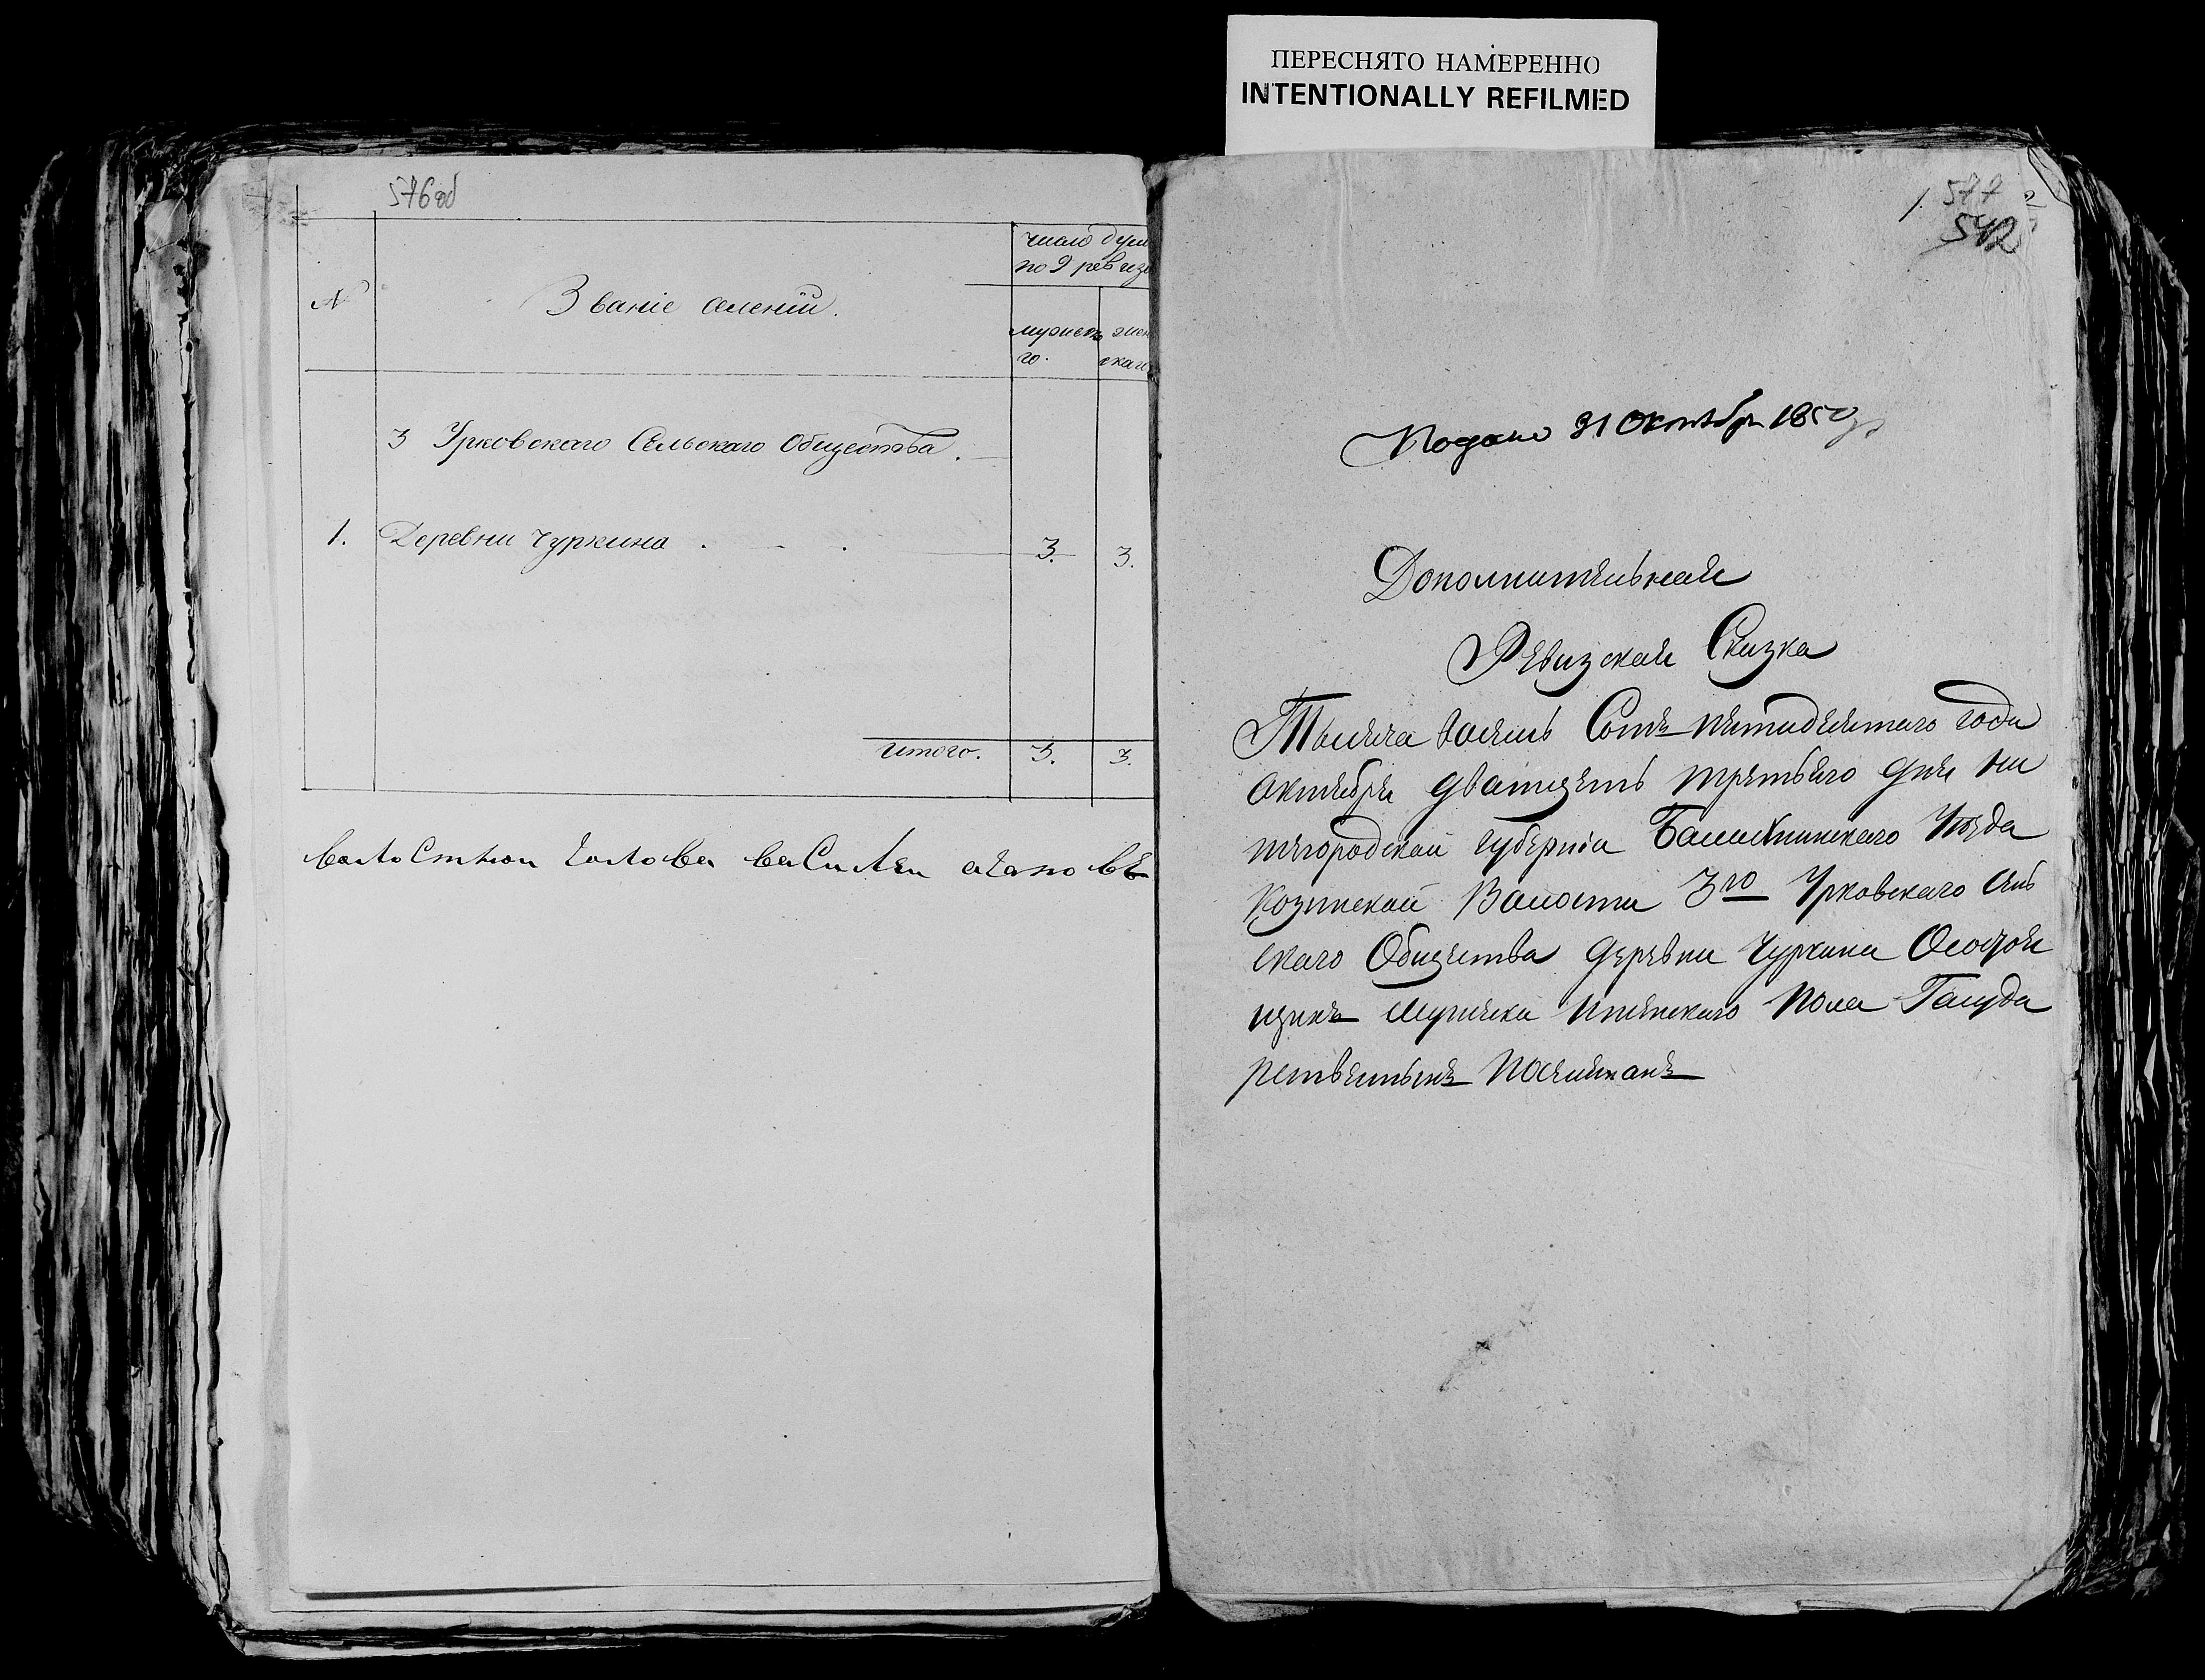 ПЕРЕСНЯТО НАМЕРЕННО
INTENTIONALLY REFILMED
576об
№
Званіе селеній.
число душ
по 9 ревизі
мужеск
го.
жен
скаго
3 Урковскаго Сельскаго Общества.
1. Деревни Чуркина 3. 3.
итого. 3. 3.
валостнои голова василеи
1. 577
542
Подано 31 Октября 1850 г
Дополнительная
Ревизская Сказка
Тысяча восемь Сотъ пятидесятаго года
октября дватцеть третьяго дня ни
жегородской губерніи Балахнинскаго Уезда
Козинской Волости 3го Урковскаго сель
скаго Общества деревни Чуркина О состоя
щихъ мужеска и женскаго пола Госуда
рственныхъ поселянахъ